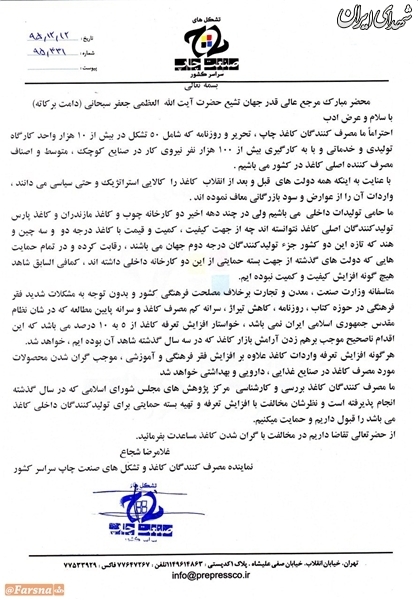 شهدای ایران
تشکل های
صنعت چاپ
سراسر کشور
تاریخ: ۹۵،۱۲،۱۲
شماره: ۹۵،۴۳۱
پیوست:
بسمه تعالی
محضر مبارک مرجع عالی قدر جهان تشیع حضرت آیت الله العظمی جعفر سبحانی (دامت برکاته)
با سلام و عرض ادب
احتراماً ما مصرف کنندگان کاغذ چاپ ، تحریر و روزنامه که شامل ۵۰ تشکل در بیش از ۱۰ هزار واحد کارگاه
تولیدی و خدماتی و با به کارگیری بیش از ۱۰۰ هزار نفر نیروی کار در صنایع کوچک ، متوسط و اصناف
مصرف کننده اصلی کاغذ در کشور می باشیم .
با عنایت به اینکه همه دولت های قبل و بعد از انقلاب کاغذ را کالایی استراتژیک و حتی سیاسی می دانند ،
واردات آن را از عوارض و سود بازرگانی معاف نموده اند .
ما حامی تولیدات داخلی می باشیم ولی در چند دهه اخیر دو کارخانه چوب و کاغذ مازندران و کاغذ پارس
تولیدکنندگان اصلی کاغذ نتوانسته اند چه از جهت کیفیت ، کمیت و قیمت با کاغذ درجه دو و سه چین و
هند که تازه این دو کشور جزء تولیدکنندگان درجه دوم جهان می باشند ، رقابت کرده و در تمام حمایت
هایی که دولت های گذشته از جهت بسته حمایتی از این دو کارخانه داخلی داشته اند ، کمافی السابق شاهد
هیچ گونه افزایش کیفیت و کمیت نبوده ایم.
متاسفانه وزارت صنعت ، معدن و تجارت برخلاف مصلحت فرهنگی کشور و بدون توجه به مشکلات شدید فقر
فرهنگی در حوزه کتاب ، روزنامه ، کاهش تیراژ ، سرانه کم مصرف کاغذ و سرانه پایین مطالعه که در شان نظام
مقدس جمهوری اسلامی ایران نمی باشد ، خواستار افزایش تعرفه کاغذ از ۵ به ۱۰ درصد می باشد که این
اقدام ناصحیح موجب برهم زدن آرامش بازار کاغذ که در سه سال گذشته شاهد آن بوده ایم ، خواهد شد.
هرگونه افزایش تعرفه واردات کاغذ علاوه بر افزایش فقر فرهنگی و آموزشی ، موجب گران شدن محصولات
مورد مصرف کاغذ در صنایع غذایی ، دارویی و بهداشتی خواهد شد
ما مصرف کنندگان کاغذ بررسی و کارشناسی مرکز پژوهش های مجلس شورای اسلامی که در سال گذشته
انجام پذیرفته است و نظرشان مخالفت با افزایش تعرفه و تهیه بسته حمایتی برای تولیدکنندگان داخلی کاغذ
می باشد را قبول داریم و حمایت میکنیم.
از حضرتعالی تقاضا داریم در مخالفت با گران شدن کاغذ مساعدت بفرمائید.
غلامرضا شجاع
نماینده مصرف کنندگان کاغذ و تشکل های صنعت چاپ سراسر کشور
تشکل های
صنعت چاپ
سراسر کشور
تهران، خیابان انقلاب، خیابان صفی علیشاه ، پلاک ۱ کدپستی: ۱۱۴۹۶۱۴۸۶۳ تلفن: ۷۷۶۴۷۲۶۷ فاکس: ۷۷۵۳۳۹۲۹
info@prepressco.ir
@Farsna